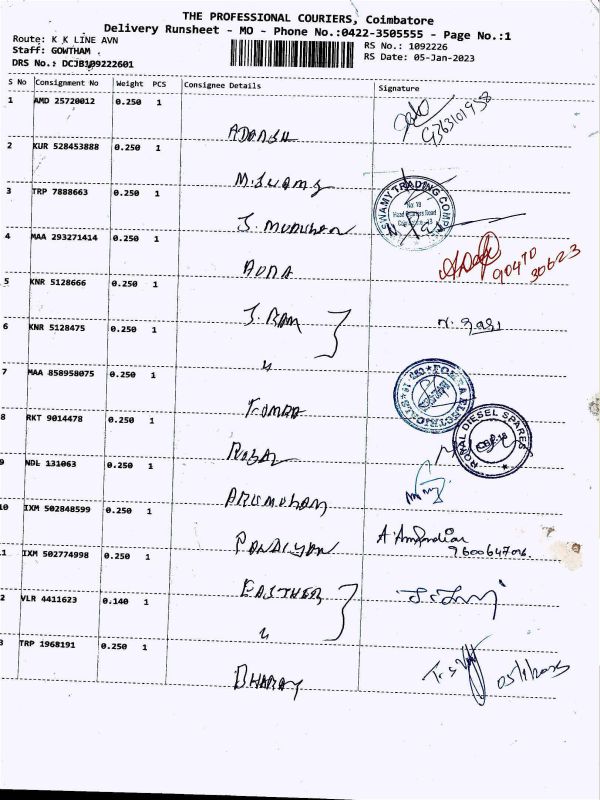 THE PROFESSIONAL COURIERS, Coimbatore
Delivery Runsheet - MO - Phone No.:0422-3505555 - Page No.:1
Route: K K LINE AVN
RS No.: 1092226
Staff: GOWTHAM
RS Date: 05-Jan-2023
DRS No.: DCJB109222601
S No Consignment No Weight PCS Consignee Details Signature
1 AMD 25720012 0.250 1
ADARSH
2 KUR 528453888 0.250 1
M. SWAMY
3 TRP 7888663 0.250 1
SWAMY TRADING COMP
No: 19
S. MURUGAN
4 MAA 293271414 0.250 1
90470
30623
5 KNR 5128666 0.250 1
S. RAM
6 KNR 5128475 0.250 1
"
7 MAA 858958075 0.250 1
8 RKT 9014478 0.250 1
RONAL DIESEL SPARES
9 NDL 131063 0.250 1
ARUMUGAM
10 IXM 502848599 0.250 1
PANDIYAN
11 IXM 502774998 0.250 1
EASTHER
2 VLR 4411623 0.140 1
"
3 TRP 1968191 0.250 1
BHARAT
05/1/2023